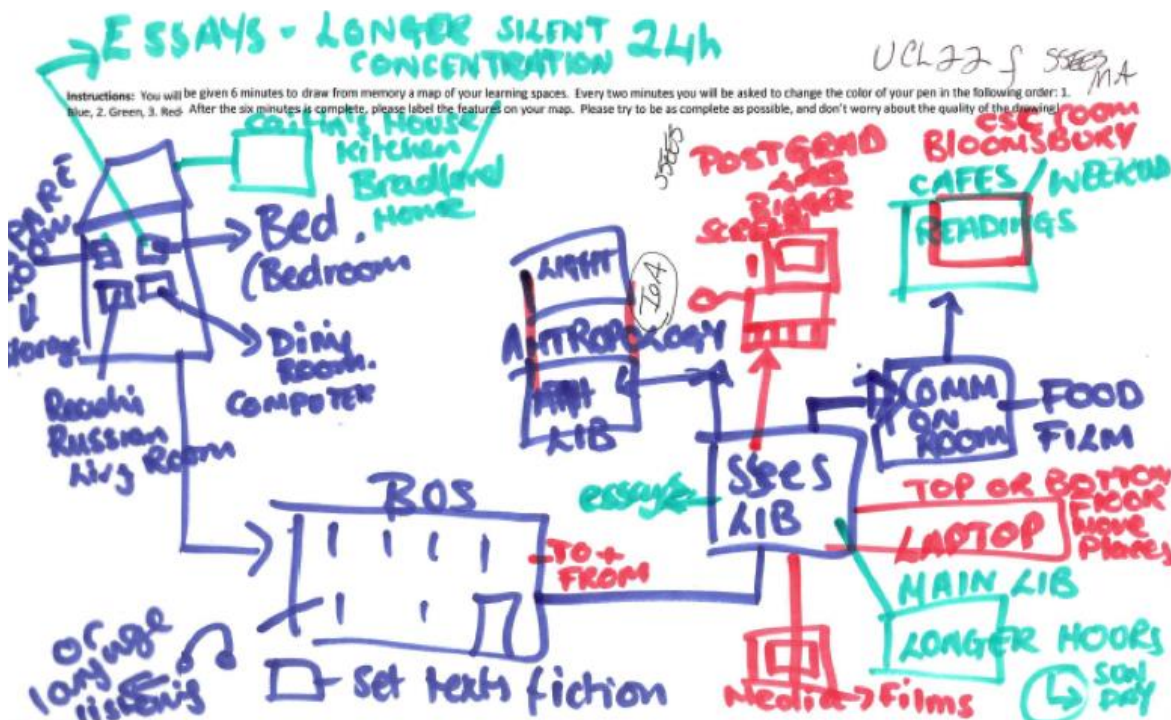 ESSAYS - LONGER SILENT 24h
CONCENTRATION
UCL22 f SSEES
MA
Instructions: You will be given 6 minutes to draw from memory a map of your learning spaces. Every two minutes you will be asked to change the color of your pen in the following order: 1.
Blue, 2. Green, 3. Red. After the six minutes is complete, please label the features on your map. Please try to be as complete as possible, and don't worry about the quality of the drawing!
House
Kitchen
Bradford
Home
SPARE
ROOM
storage
Bed.
(Bedroom
Dinig
ROOM.
COMPUTER
Readin
Russian
Livg Room
LIGHT
IoA
ANTROPOLOGY
LIB
SSEES
POSTGRAD
LAB
BIGGER
SCREEN
CSC ROOM
BLOOMSBURY
CAFES / WEEKEND
READINGS
COMM
ON
ROOM
FOOD
FILM
SSees
LIB
essays
TOP OR BOTTOM
FLOOR
Move
Places
LAPTOP
MAIN LIB
LONGER HOORS
SUN
DAY
BOS
TO +
FROM
or
lang
listenig
Set texts fiction
Media → Films